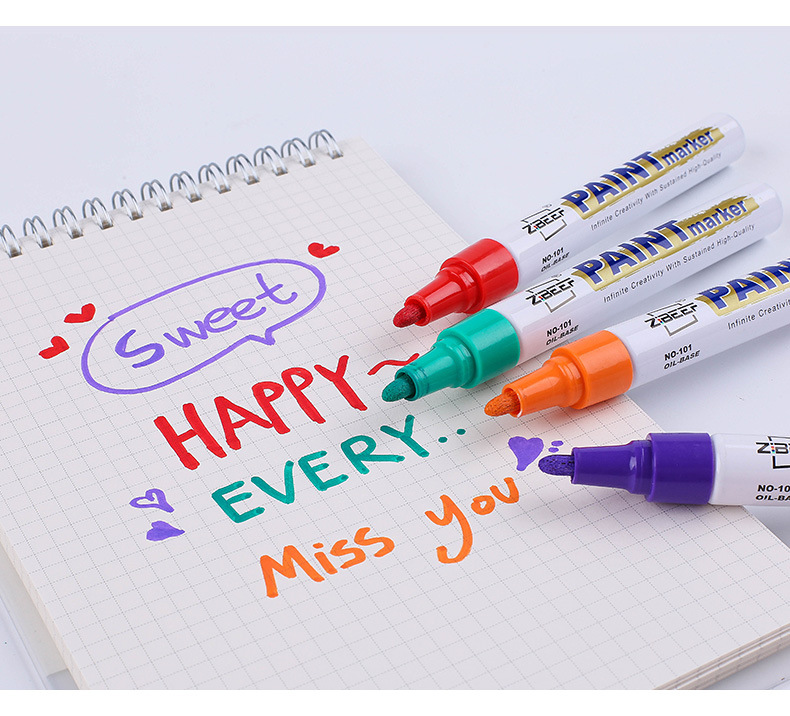 Sweet
HAPPY ~
EVERY..
Miss You
ZiBEEF PAINT marker
Infinite Creativity With Sustained High-Quality
NO-101
OIL-BASE
ZiBEEF PAINT marker
Infinite Creativity With Sustained High-Quality
NO-101
OIL-BASE
ZiBEEF PAINT
Infinite Creativity
NO-101
OIL-BASE
NO-10
OIL-BA